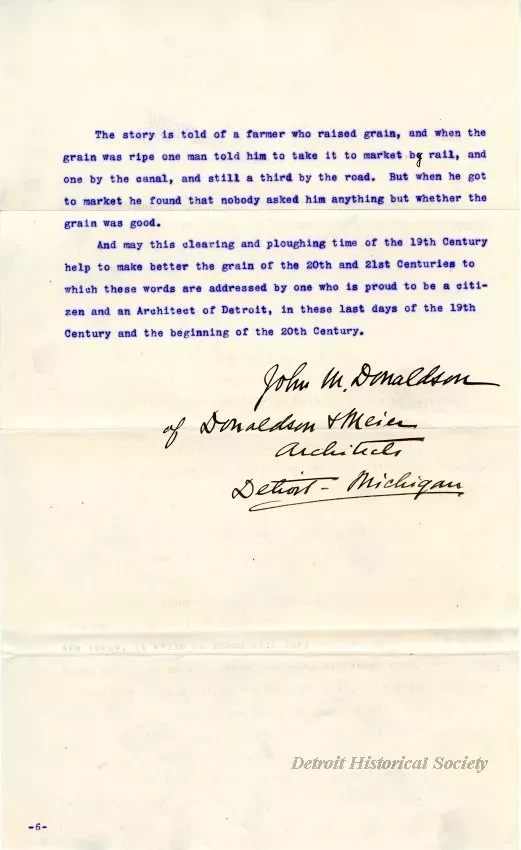 The story is told of a farmer who raised grain, and when the
grain was ripe one man told him to take it to market by rail, and
one by the canal, and still a third by the road. But when he got
to market he found that nobody asked him anything but whether the
grain was good.
And may this clearing and ploughing time of the 19th Century
help to make better the grain of the 20th and 21st Centuries to
which these words are addressed by one who is proud to be a citi-
zen and an Architect of Detroit, in these last days of the 19th
Century and the beginning of the 20th Century.
John M. Donaldson
of Donaldson & Meier
Architects
Detroit - Michigan.
Detroit Historical Society
-6-